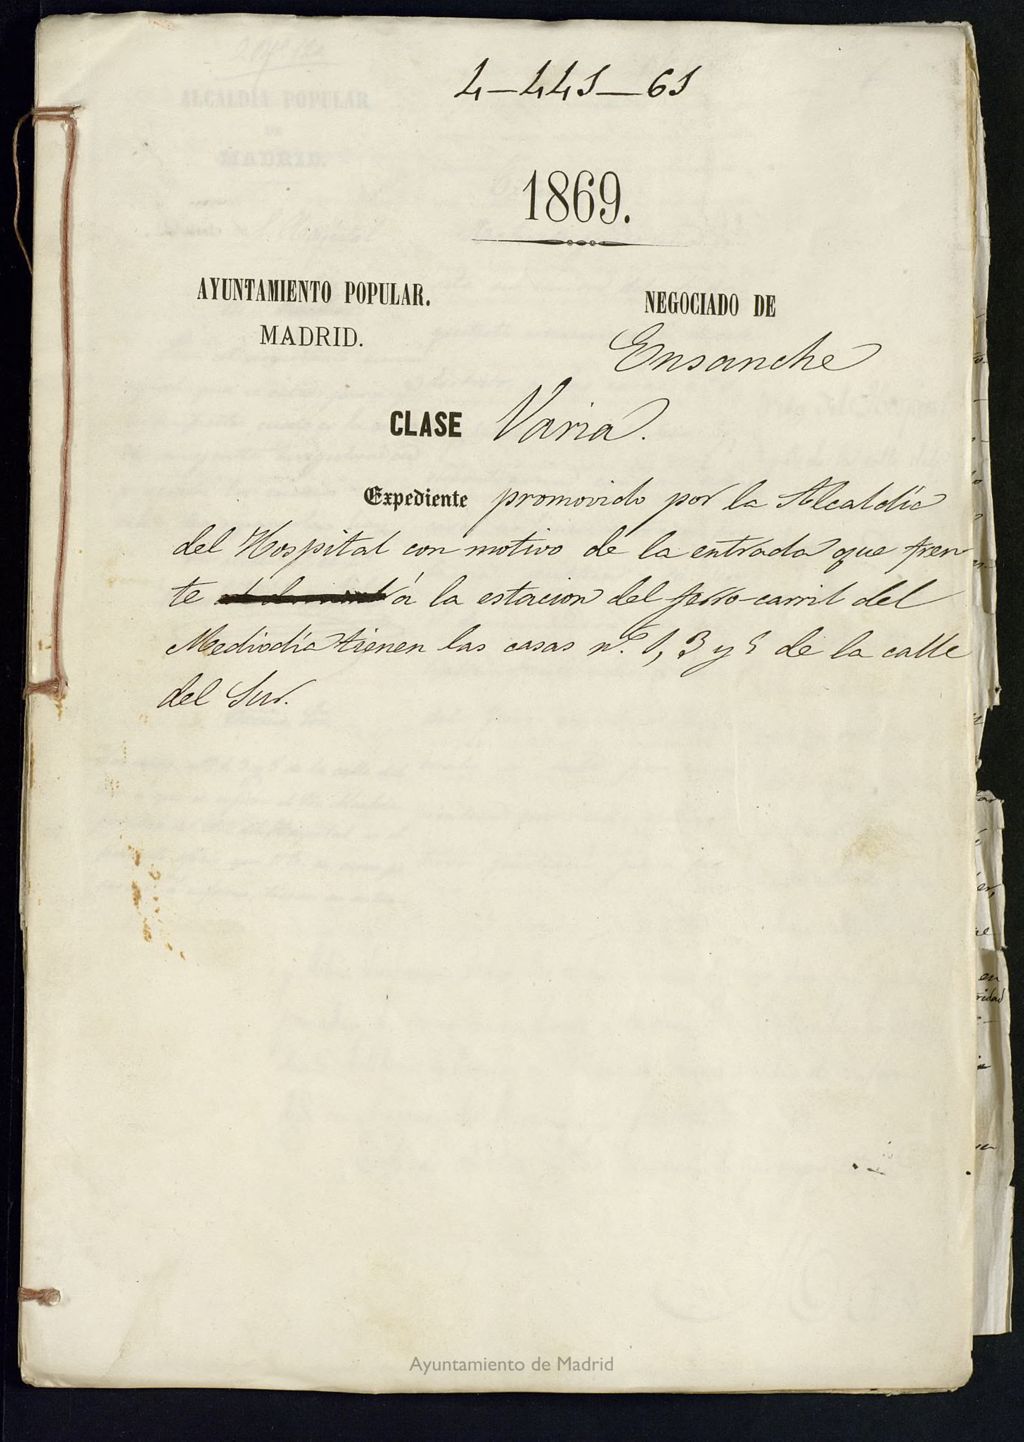 4-441-61
1869.
AYUNTAMIENTO POPULAR.
MADRID.
NEGOCIADO DE
Ensanche
CLASE Varia.
Expediente promovido por la Alcaldía
del Hospital con motivo de la entrada que fren
te á la estacion del ferro-carril del
Mediodía tienen las casas n.º 1, 3 y 5 de la calle
del Sur.
Ayuntamiento de Madrid